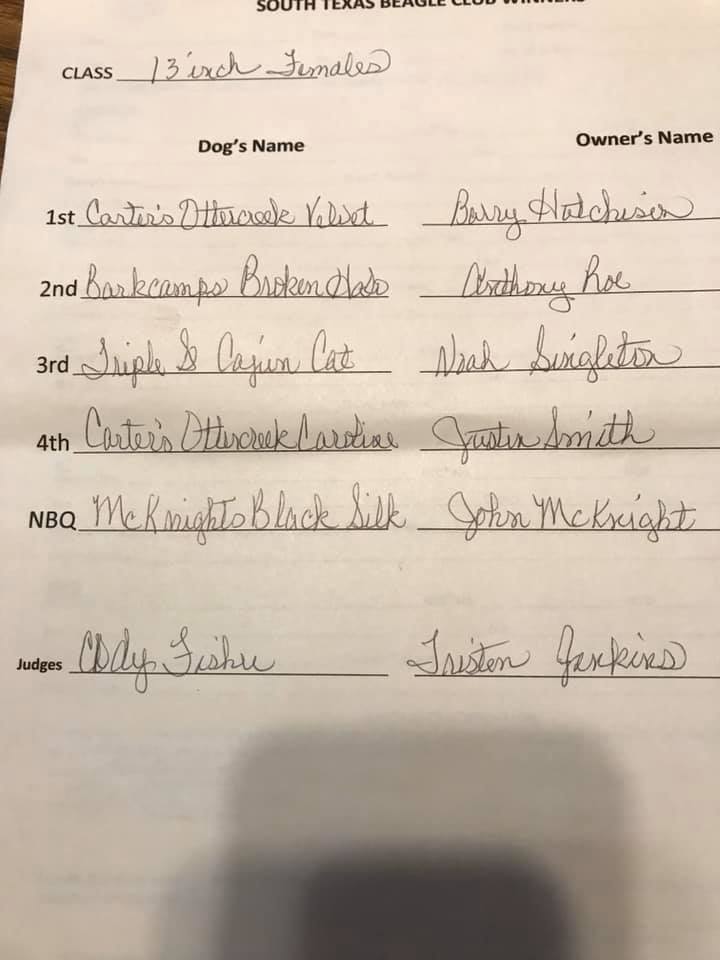 SOUTH TEXAS BEAGLE CLUB WINNERS
CLASS 13 inch Females
Dog's Name Owner's Name
1st Carter's Ottercreek Velvet Barry Hutchison
2nd Barkcamps Broken Halo Anthony Roe
3rd Triple S Cajun Cat Noah Singleton
4th Carter's Ottercreek Caroline Justin Smith
NBQ McKnights Black Silk John McKnight
Judges Cody Fisher Tristen Jenkins